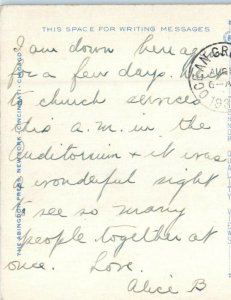 THIS SPACE FOR WRITING MESSAGES
I am down here
for a few days. W
to church services
this a.m. in the
auditorium & it was
a wonderful sight
to see so many
people together at
once. Love.
Alice B
OCEAN GR
AUG
6-
193
THE ABINGDON PRESS, NEW YORK, CINCINNATI, CHICAGO